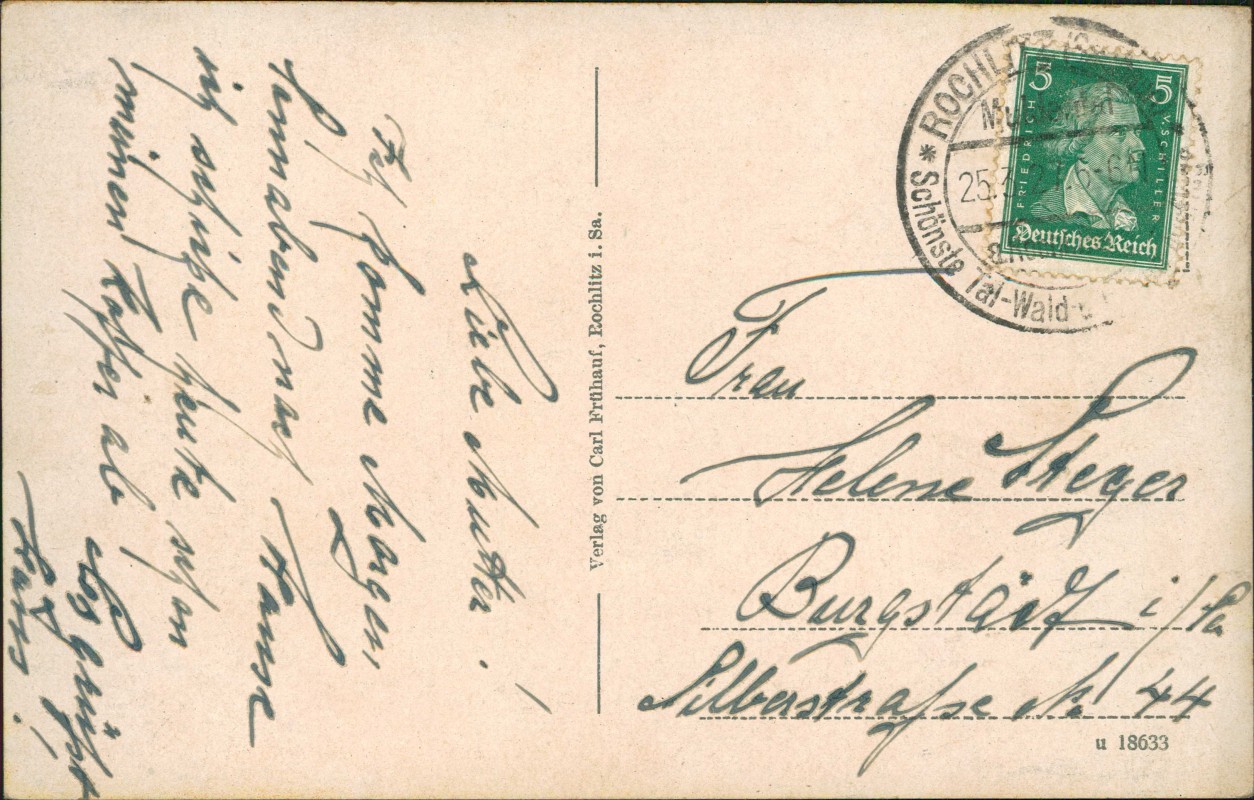 Liebe Mutter!
Ich komme Morgen
Sonnabend nach Hause
ich schicke heute schon
meinen Koffer ab
Es grüßt
Hans!
Verlag von Carl Frühauf, Rochlitz i. Sa.
* ROCHLITZ
25.3. 6-6
Schönste Tal-Wald-u
5 5
FRIEDRICH V. SCHILLER
Deutsches Reich
Frau
Helene Steger
Burgstädt i/Sa
Silberstraße No 44
u 18633